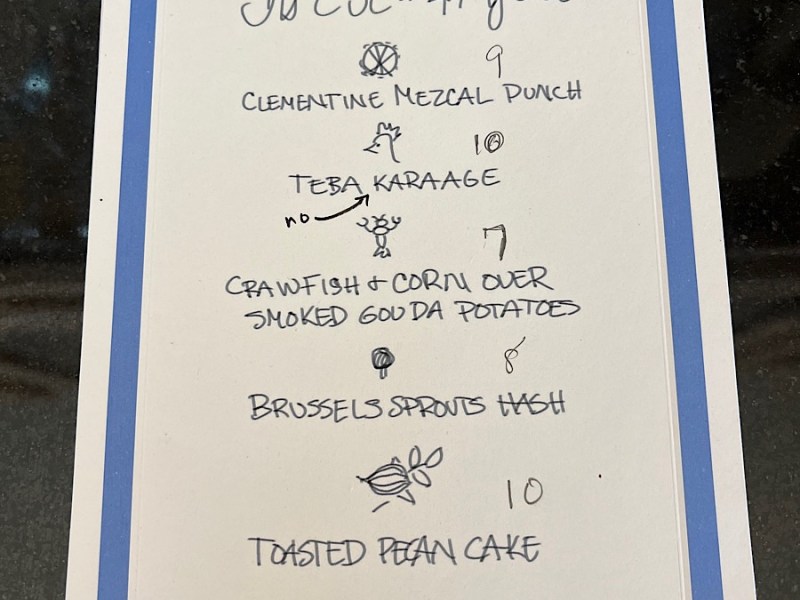 9
CLEMENTINE MEZCAL PUNCH
10
TEBA KARAAGE
no
7
CRAWFISH + CORN OVER
SMOKED GOUDA POTATOES
8
BRUSSELS SPROUTS HASH
10
TOASTED PECAN CAKE